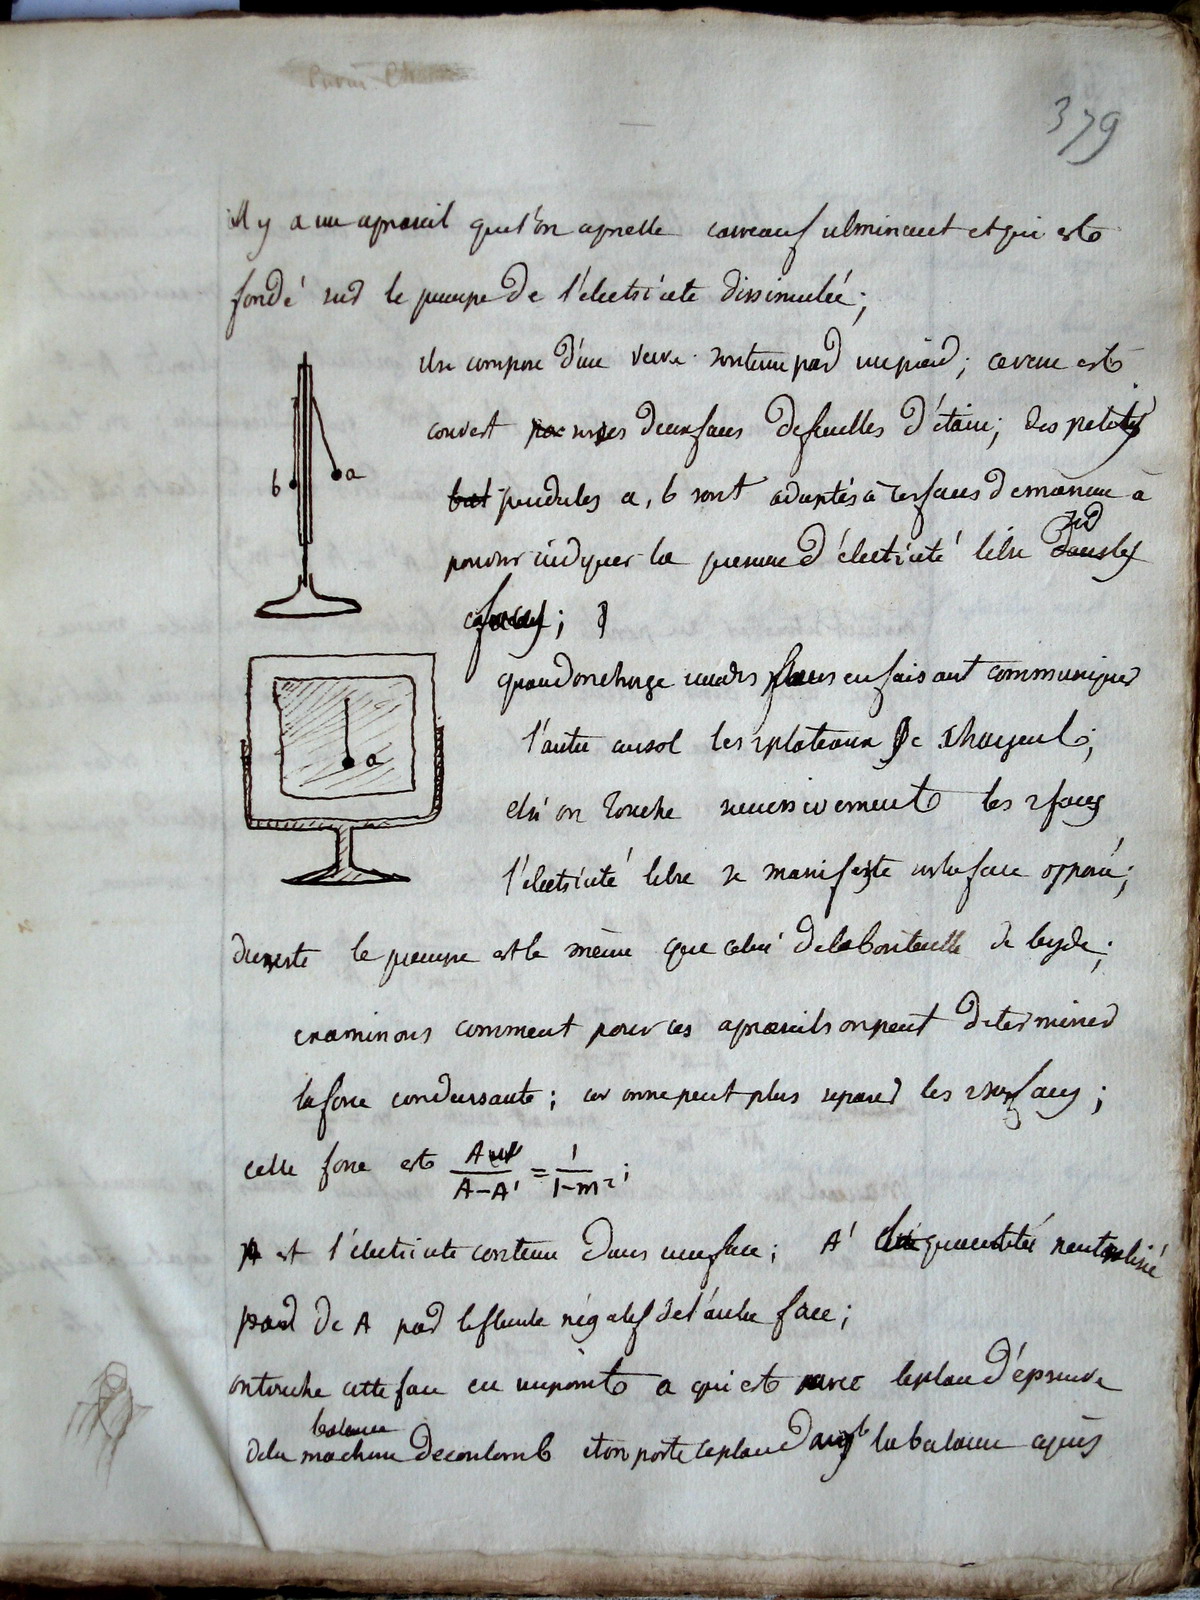 379
il y a un apareil que l'on apnelle carreau fulminant et qui est
fondé sur le principe de l'électricité dissimulée;
il se compose d'un verre soutenu par un pied; ce verre est
couvert sur ses deux faces de feuilles d'étain; des petits
pendules a, b sont adaptés à ces faces de manière à
pouvoir indiquer la présence d'électricité libre sur
ces faces;
b a
quand on charge une des faces en faisant communiquer
l'autre au sol les 2 plateaux se chargent;
a
et si on touche successivement les 2 faces
l'électricité libre se manifeste sur la face opposée;
du reste le principe est le même que celui de la bouteille de leyde;
examinons comment pour ces apareils on peut determiner
la force condensante; car on ne peut plus separer les 2 surfaces;
cette force est A/(A-A') = 1/(1-m²);
A est l'électricité contenue dans une face; A' quantité neutralisé
par de A par le fluide négatif de l'autre face;
on touche cette face en un point a qui est avec le plan d'épreuve
balance
de la machine de coulomb et on porte ce plan dans la balance après